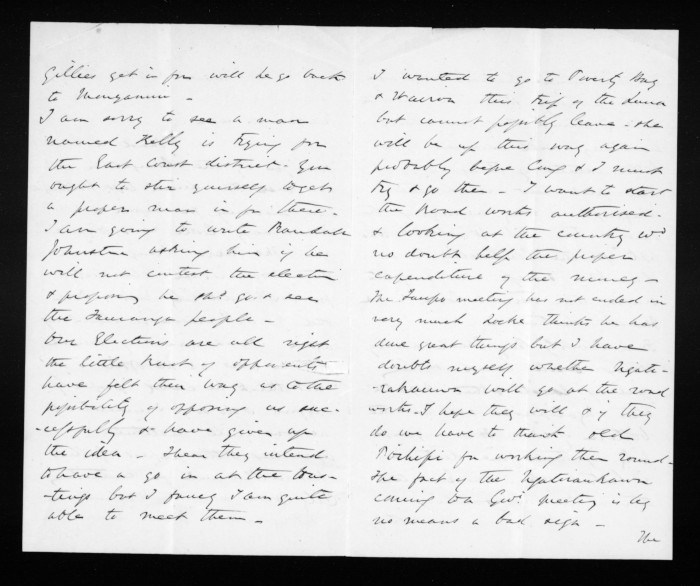 Gillies get in for will he go back
to Mongonui -
I am sorry to see a man
named Kelly is trying for
the East Coast district. You
ought to stir yourself to get
a proper man in for there -
I am going to write Randall
Johnstone asking him if he
will not contest the election
& proposing he shd go & see
the Tauranga people -
Our Elections are all right
the little knot of opponents
have felt their way as to the
possibility of opposing us suc-
-cessfully & have given up
the idea - I hear they intend
to have a go in at the hus-
-tings but I fancy I am quite
able to meet them -
I wanted to go to Poverty Bay
& Wairoa this trip of the Luna
but cannot possibly leave - she
will be up this way again
probably before long & I must
try & go then - I want to start
the Road works authorised -
& looking at the country wd
no doubt help the proper
expenditure of the money -
The Taupo meeting has not ended in
very much Locke thinks he has
done great things but I have
doubts myself whether Ngati-
-raukawa will go at the road
works - I hope they will & if they
do we have to thank old
Poihipi for working them round -
The fact of the Ngatiraukawa
coming to a Govt meeting is by
no means a bad sign -
The